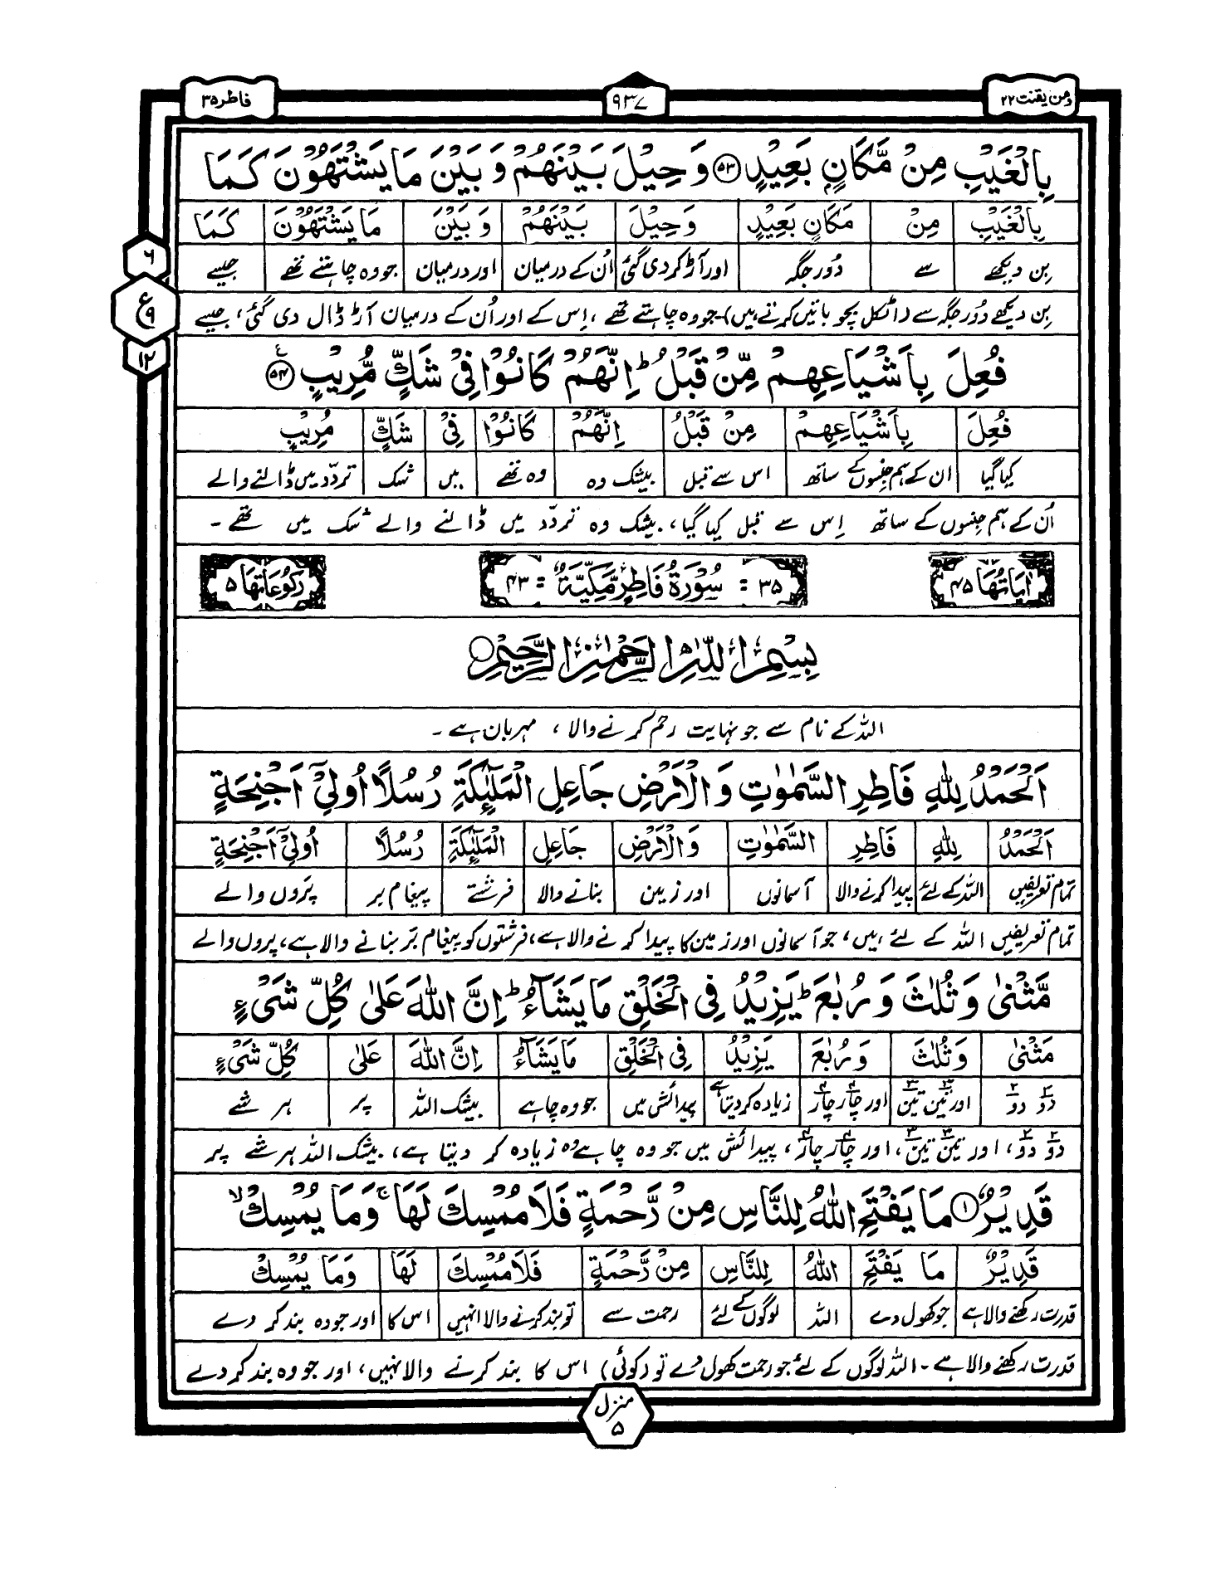 ومن یقنت ۲۲
۹۳۷
فاطر ۳۵
بِالْغَيْبِ مِنْ مَّكَانٍ بَعِيْدٍ ۝۵۳ وَحِيْلَ بَيْنَهُمْ وَبَيْنَ مَا يَشْتَهُوْنَ كَمَا
بِالْغَيْبِ مِنْ مَكَانٍ بَعِيْدٍ وَحِيْلَ بَيْنَهُمْ وَبَيْنَ مَا يَشْتَهُوْنَ كَمَا
بن دیکھے سے دُور جگہ اور آڑ کر دی گئی اُن کے درمیان اور درمیان جو وہ چاہتے تھے جیسے
بن دیکھے دُور جگہ سے (اٹکل پچو باتیں کرتے ہیں)۔ جو وہ چاہتے تھے، اِس کے اور اُن کے درمیان آڑ ڈال دی گئی، جیسے
۶
ع
۹
۱۲
فُعِلَ بِاَشْيَاعِهِمْ مِّنْ قَبْلُ ؕ اِنَّهُمْ كَانُوْا فِيْ شَكٍّ مُّرِيْبٍ ۝۵۴
فُعِلَ بِاَشْيَاعِهِمْ مِنْ قَبْلُ اِنَّهُمْ كَانُوْا فِيْ شَكٍّ مُرِيْبٍ
کیا گیا ان کے ہم جنسوں کے ساتھ اس سے قبل بیشک وہ وہ تھے میں شک تردّد میں ڈالنے والے
اُن کے ہم جنسوں کے ساتھ اِس سے قبل کیا گیا، بیشک وہ تردّد میں ڈالنے والے شک میں تھے۔
اٰيَاتُهَا ۴۵
۳۵ = سُوْرَةُ فَاطِرٍ مَّكِّيَّةٌ = ۴۳
رُكُوْعَاتُهَا ۵
بِسْمِ اللّٰهِ الرَّحْمٰنِ الرَّحِيْمِ
اللہ کے نام سے جو نہایت رحم کرنے والا، مہربان ہے۔
اَلْحَمْدُ لِلّٰهِ فَاطِرِ السَّمٰوٰتِ وَالْاَرْضِ جَاعِلِ الْمَلٰٓئِكَةِ رُسُلًا اُولِيْٓ اَجْنِحَةٍ
اَلْحَمْدُ لِلّٰهِ فَاطِرِ السَّمٰوٰتِ وَالْاَرْضِ جَاعِلِ الْمَلٰٓئِكَةِ رُسُلًا اُولِيْٓ اَجْنِحَةٍ
تمام تعریفیں اللہ کے لئے پیدا کرنے والا آسمانوں اور زمین بنانے والا فرشتے پیغام بر پَروں والے
تمام تعریفیں اللہ کے لئے ہیں، جو آسمانوں اور زمین کا پیدا کرنے والا ہے، فرشتوں کو پیغام بَر بنانے والا ہے، پروں والے
مَّثْنٰى وَثُلٰثَ وَرُبٰعَ ؕ يَزِيْدُ فِي الْخَلْقِ مَا يَشَآءُ ؕ اِنَّ اللّٰهَ عَلٰى كُلِّ شَيْءٍ
مَثْنٰى وَثُلٰثَ وَرُبٰعَ يَزِيْدُ فِي الْخَلْقِ مَا يَشَآءُ اِنَّ اللّٰهَ عَلٰى كُلِّ شَيْءٍ
دو دو اور تین تین اور چار چار زیادہ کر دیتا ہے پیدائش میں جو وہ چاہے بیشک اللہ پر ہر شے
دو دو، اور تین تین، اور چار چار، پیدائش میں جو وہ چاہے وہ زیادہ کر دیتا ہے، بیشک اللہ ہر شے پر
قَدِيْرٌ ۝۱ مَا يَفْتَحِ اللّٰهُ لِلنَّاسِ مِنْ رَّحْمَةٍ فَلَا مُمْسِكَ لَهَا ۚ وَمَا يُمْسِكْ ۙ
قَدِيْرٌ مَا يَفْتَحِ اللّٰهُ لِلنَّاسِ مِنْ رَّحْمَةٍ فَلَا مُمْسِكَ لَهَا وَمَا يُمْسِكْ
قدرت رکھنے والا ہے جو کھول دے اللہ لوگوں کے لئے رحمت سے تو بند کرنے والا نہیں اس کا اور جو وہ بند کر دے
قدرت رکھنے والا ہے۔ اللہ لوگوں کے لئے جو رحمت کھول دے تو (کوئی) اس کا بند کرنے والا نہیں، اور جو وہ بند کر دے
منزل
۵